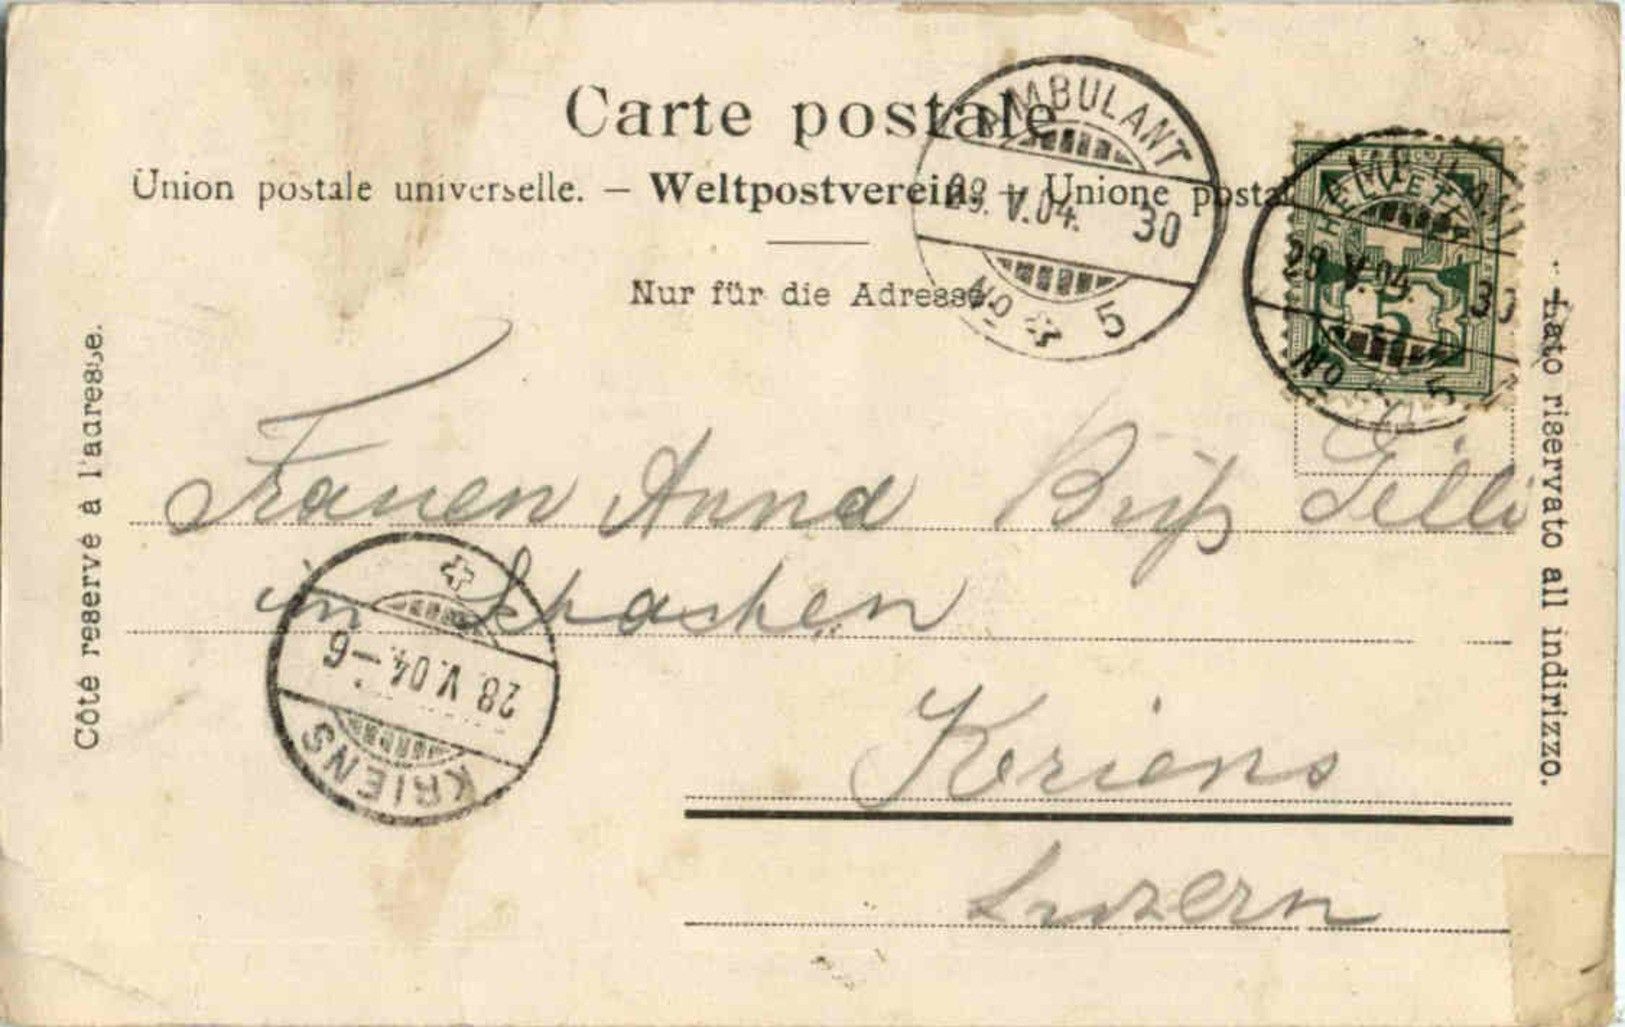 Carte postale
Union postale universelle. — Weltpostverein. — Unione postal
Nur für die Adresse.
Côté reservé à l'adresse.
Lato riservato all indirizzo.
AMBULANT
28. V. 04. 30
No 5
HELVETIA
AMBULANT
28 V. 04. 30
5
No 5
Frauen Anna
in Schachen
Kriens
Luzern
KRIENS
28. V. 04.-6